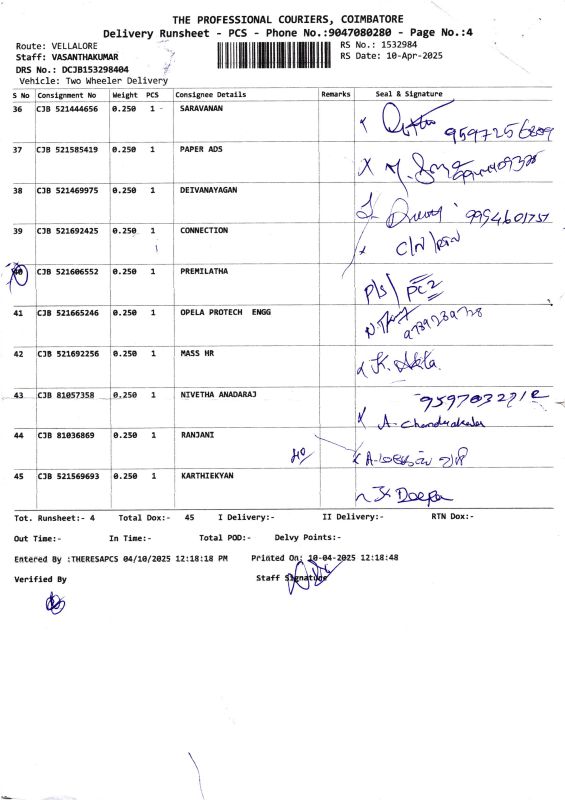 THE PROFESSIONAL COURIERS, COIMBATORE
Delivery Runsheet - PCS - Phone No.:9047080280 - Page No.:4
Route: VELLALORE
RS No.: 1532984
Staff: VASANTHAKUMAR
RS Date: 10-Apr-2025
DRS No.: DCJB153298404
Vehicle: Two Wheeler Delivery
S No Consignment No Weight PCS Consignee Details Remarks Seal & Signature
36 CJB 521444656 0.250 1 SARAVANAN
37 CJB 521585419 0.250 1 PAPER ADS
38 CJB 521469975 0.250 1 DEIVANAYAGAN
9994601757
39 CJB 521692425 0.250 1 CONNECTION
C/N
40 CJB 521606552 0.250 1 PREMILATHA
P/S
41 CJB 521665246 0.250 1 OPELA PROTECH ENGG
42 CJB 521692256 0.250 1 MASS HR
43 CJB 81057358 0.250 1 NIVETHA ANADARAJ
44 CJB 81036869 0.250 1 RANJANI
45 CJB 521569693 0.250 1 KARTHIEKYAN
Deepa
Tot. Runsheet:- 4 Total Dox:- 45 I Delivery:- II Delivery:- RTN Dox:-
Out Time:- In Time:- Total POD:- Delvy Points:-
Entered By :THERESAPCS 04/10/2025 12:18:18 PM Printed On: 10-04-2025 12:18:48
Verified By Staff Signature